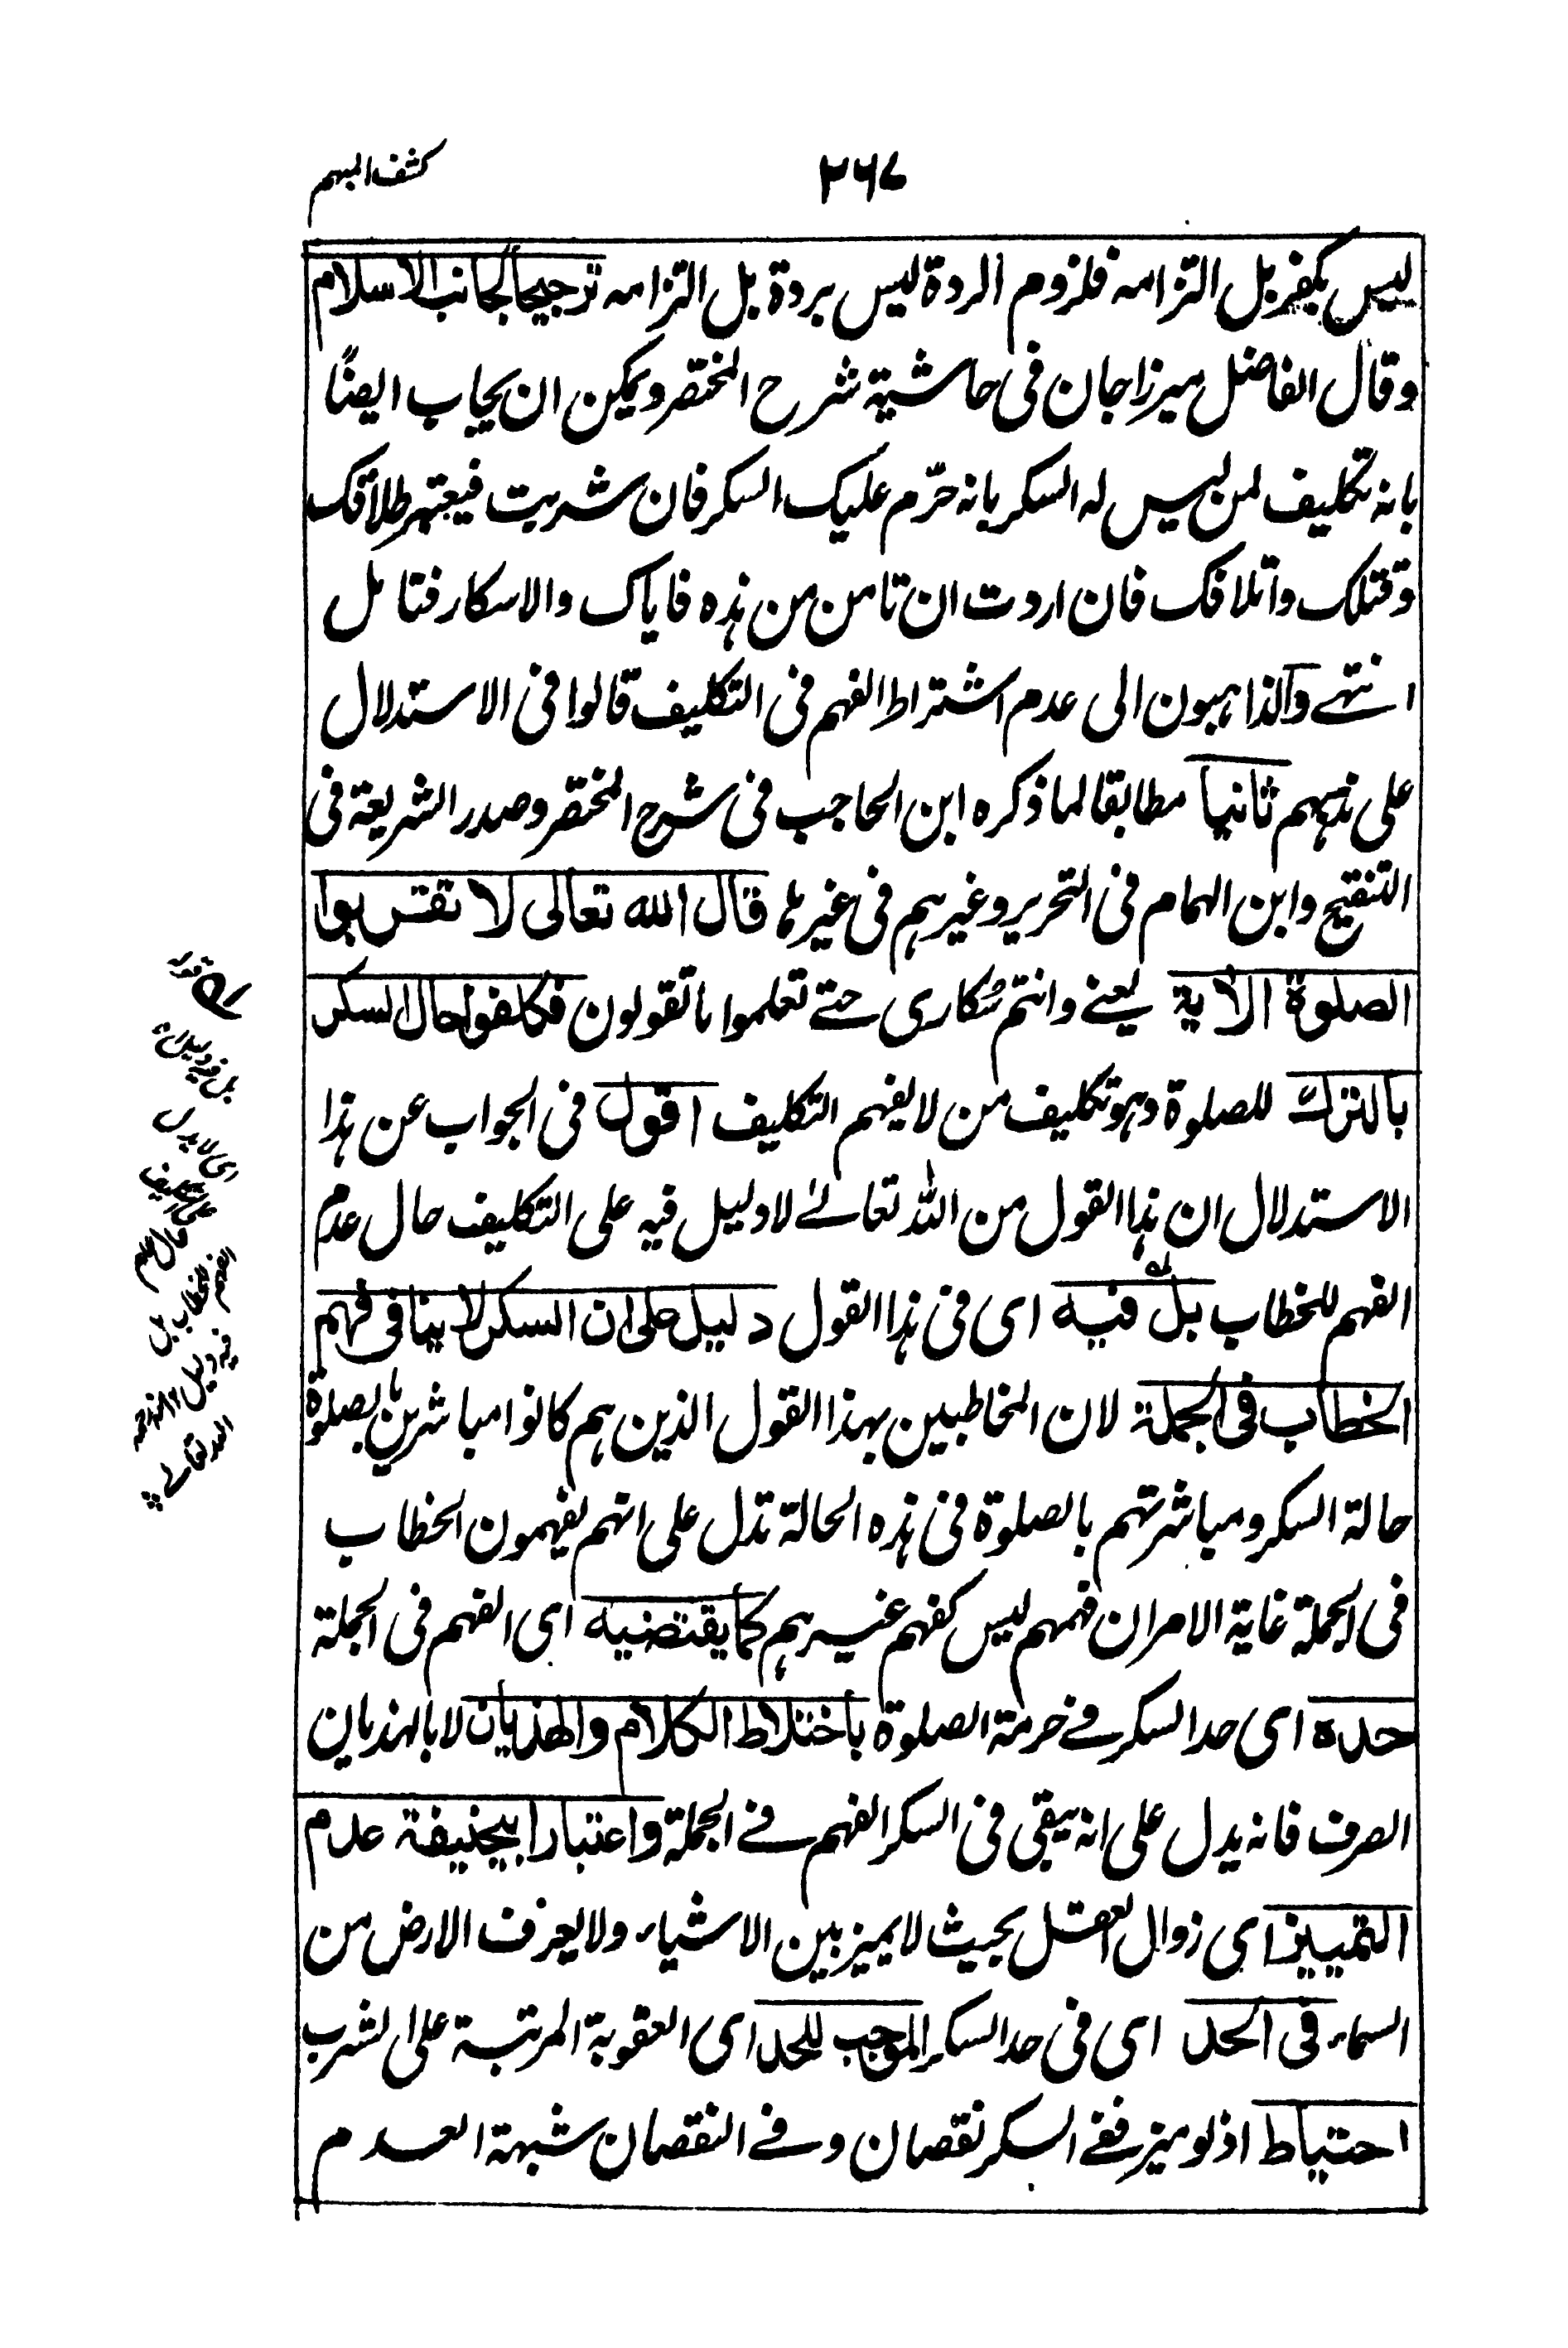 ٢٦٧
كشف المبهم
ليس بكفر بل التزامه فلزوم الردة ليس بردة بل التزامه ترجيحا لجانب الاسلام
وقال الفاضل ميرزاجان فى حاشية شرح المختصر ويمكن ان يجاب ايضًا
بانه تكليف لمن ليس له السكر بانه حرّم عليك السكر فان شربت فيعتبر طلاقك
وقتلك واتلافك فان اردت ان تامن من هذه فاياك والاسكار فتامل
انتهے والذاهبون الى عدم اشتراط الفهم فى التكليف قالوا فى الاستدلال
على مذهبهم ثانيا مطابقا لما ذكره ابن الحاجب فى شرح المختصر وصدر الشريعة فى
التنقيح وابن الهمام فى التحرير وغيرهم فى غيرها قال الله تعالى لا تقربوا
الصلوة الأية يعنے وانتم سُكارى حتے تعلموا ما تقولون فكلفوا حال السكر
بالترك للصلوة وهو تكليف من لا يفهم التكليف اقول فى الجواب عن هذا
الاستدلال ان هذا القول من الله تعالےٰ لا دليل فيه على التكليف حال عدم
الفهم للخطاب بل فيه اى فى هذا القول دليل على ان السكر لا ينافى فهم
الخطاب فى الجملة لان المخاطبين بهذا القول الذين هم كانوا مباشرين بالصلوة
حالة السكر ومباشرتهم بالصلوة فى هذه الحالة تدل على انهم يفهمون الخطاب
فى الجملة غاية الامر ان فهمهم ليس كفهم غيرهم كما يقتضيه اى الفهم فى الجملة
حده اى حد السكر فے حرمة الصلوة باختلاط الكلام والهذيان لا بالهذيان
الصرف فانه يدل على انه يبقى فى السكر الفهم فے الجملة واعتبار ابيحنيفة عدم
التمييز اى زوال العقل بحيث لا يميز بين الاشياء ولا يعرف الارض من
السماء فى الحد اى فى حد السكر الموجب للحد اى العقوبة المرتبة على الشرب
احتياط اذ لو ميز ففے السكر نقصان وفے النقصان شبهة العدم
بل فيه دليل
اى لا يدل
على التكليف
حال عدم
الفهم للخطاب بل
فيه دليل
الله تعالے